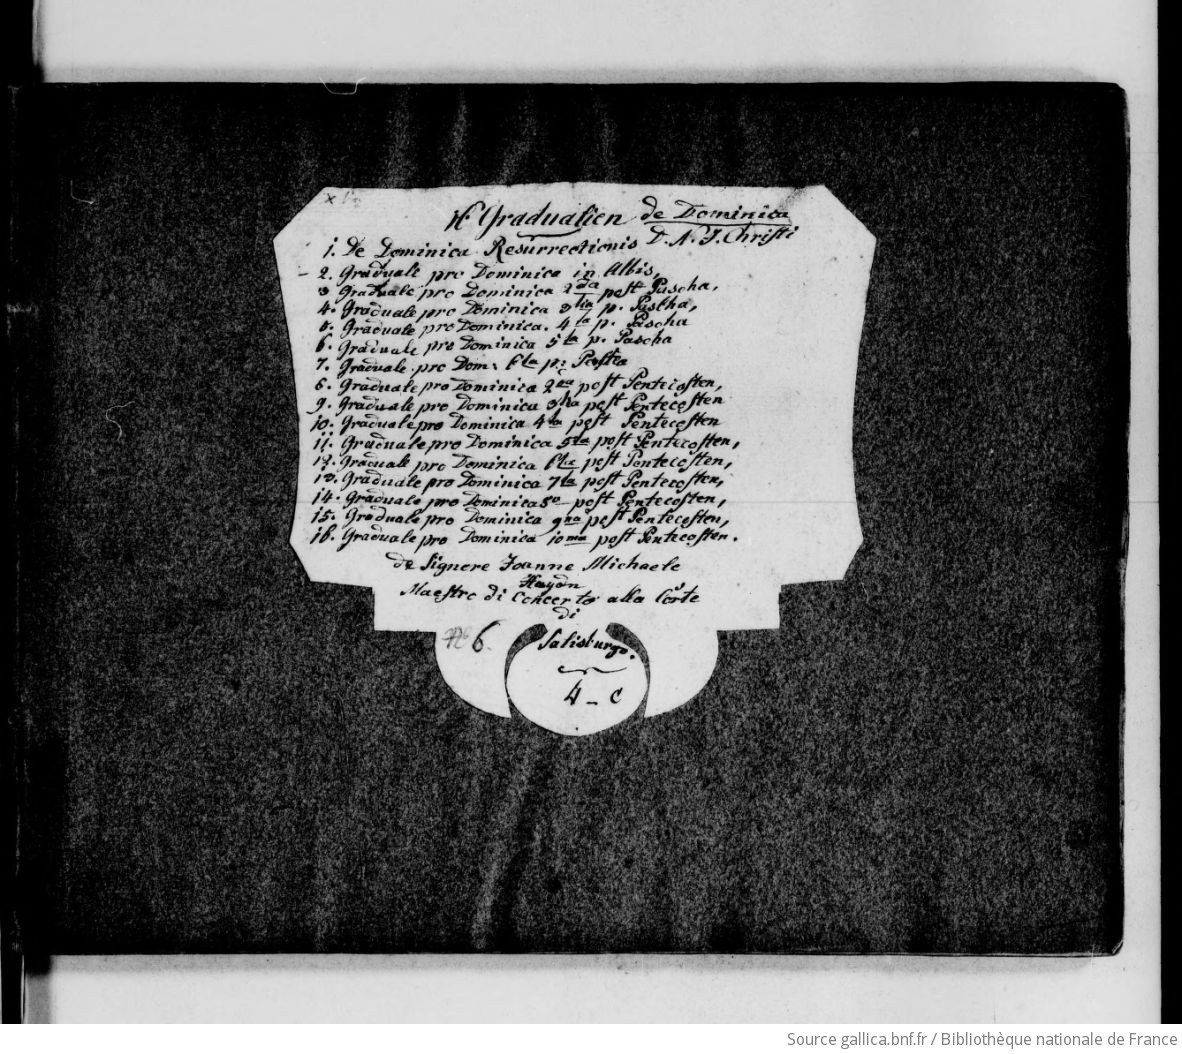 16 Gradualien de Dominica
1. De Dominica Resurrectionis D. N. J. Christi
2. Graduale pro Dominica in Albis,
3 Graduale pro Dominica 2da post Pascha,
4. Graduale pro Dominica 3tia p. Pascha,
5. Graduale pro Dominica. 4ta p. Pascha
6. Graduale pro Dominica 5ta p. Pascha
7. Graduale pro Dom: 6ta p:
8. Graduale pro Dominica 2da post Pentecosten,
9. Graduale pro Dominica 3tia post Pentecosten
10. Graduale pro Dominica 4ta post Pentecosten
11. Graduale pro Dominica 5ta post Pentecosten,
12. Graduale pro Dominica 6ta post Pentecosten,
13. Graduale pro Dominica 7ta post Pentecosten,
14. Graduale pro Dominica 8va post Pentecosten,
15. Graduale pro Dominica 9na post Pentecosten,
16. Graduale pro Dominica 10ma post Pentecosten.
de Signore Joanne Michaele
Haydn
Maestro di Concerto alla Corte
di
No 6. Salisburgo.
4 - c
Source gallica.bnf.fr / Bibliothèque nationale de France